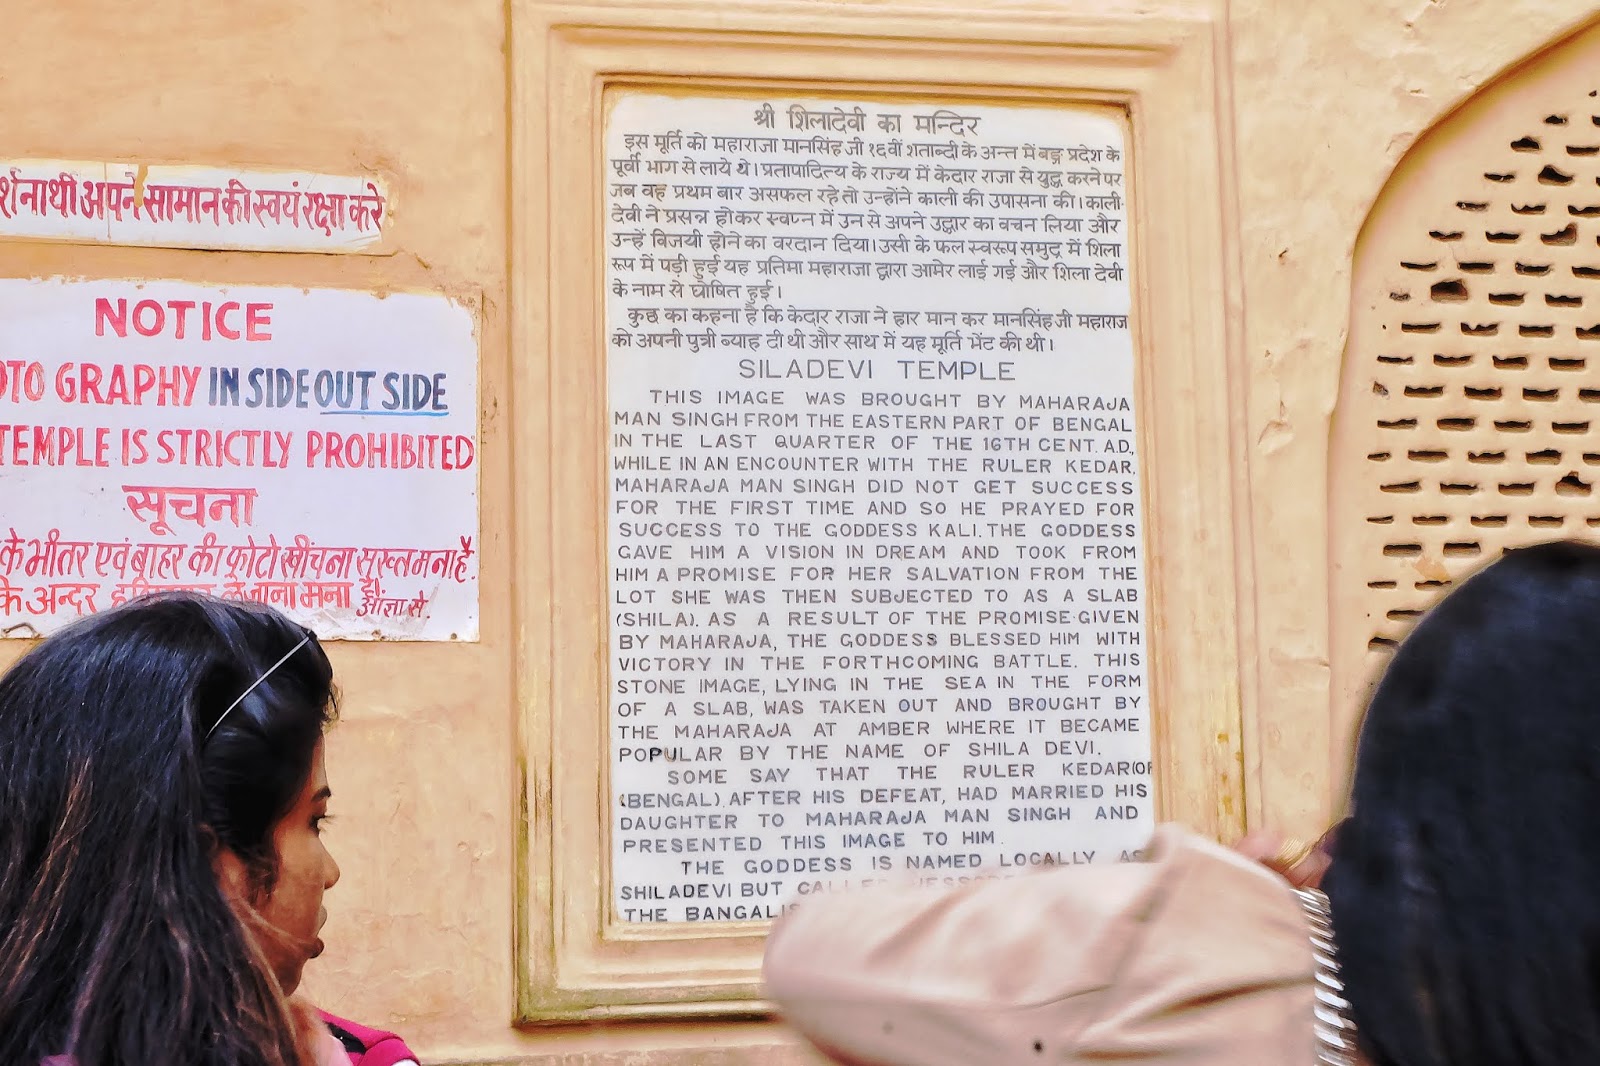 र्शनार्थी अपने सामान की स्वयं रक्षा करे
NOTICE
OTO GRAPHY IN SIDE OUT SIDE
TEMPLE IS STRICTLY PROHIBITED
सूचना
के भीतर एवं बाहर की फ़ोटो खींचना सख्त मना है.
के अन्दर लेजाना मना है।
आज्ञा से.
श्री शिलादेवी का मन्दिर
इस मूर्ति को महाराजा मानसिंह जी १६वीं शताब्दी के अन्त में बङ्ग प्रदेश के
पूर्वी भाग से लाये थे। प्रतापादित्य के राज्य में केदार राजा से युद्ध करने पर
जब वह प्रथम बार असफल रहे तो उन्होंने काली की उपासना की। काली-
देवी ने प्रसन्न होकर स्वप्न में उन से अपने उद्धार का वचन लिया और
उन्हें विजयी होने का वरदान दिया। उसी के फल स्वरूप समुद्र में शिला
रूप में पड़ी हुई यह प्रतिमा महाराजा द्वारा आमेर लाई गई और शिला देवी
के नाम से घोषित हुई।
कुछ का कहना है कि केदार राजा ने हार मान कर मानसिंह जी महाराज
को अपनी पुत्री ब्याह दी थी और साथ में यह मूर्ति भेंट की थी।
SILADEVI TEMPLE
THIS IMAGE WAS BROUGHT BY MAHARAJA
MAN SINGH FROM THE EASTERN PART OF BENGAL
IN THE LAST QUARTER OF THE 16TH CENT. A.D.,
WHILE IN AN ENCOUNTER WITH THE RULER KEDAR,
MAHARAJA MAN SINGH DID NOT GET SUCCESS
FOR THE FIRST TIME AND SO HE PRAYED FOR
SUCCESS TO THE GODDESS KALI. THE GODDESS
GAVE HIM A VISION IN DREAM AND TOOK FROM
HIM A PROMISE FOR HER SALVATION FROM THE
LOT SHE WAS THEN SUBJECTED TO AS A SLAB
(SHILA). AS A RESULT OF THE PROMISE GIVEN
BY MAHARAJA, THE GODDESS BLESSED HIM WITH
VICTORY IN THE FORTHCOMING BATTLE. THIS
STONE IMAGE, LYING IN THE SEA IN THE FORM
OF A SLAB, WAS TAKEN OUT AND BROUGHT BY
THE MAHARAJA AT AMBER WHERE IT BECAME
POPULAR BY THE NAME OF SHILA DEVI.
SOME SAY THAT THE RULER KEDAR(OF
(BENGAL) AFTER HIS DEFEAT, HAD MARRIED HIS
DAUGHTER TO MAHARAJA MAN SINGH AND
PRESENTED THIS IMAGE TO HIM.
THE GODDESS IS NAMED LOCALLY AS
SHILADEVI BUT CALLED
THE BANGALIS